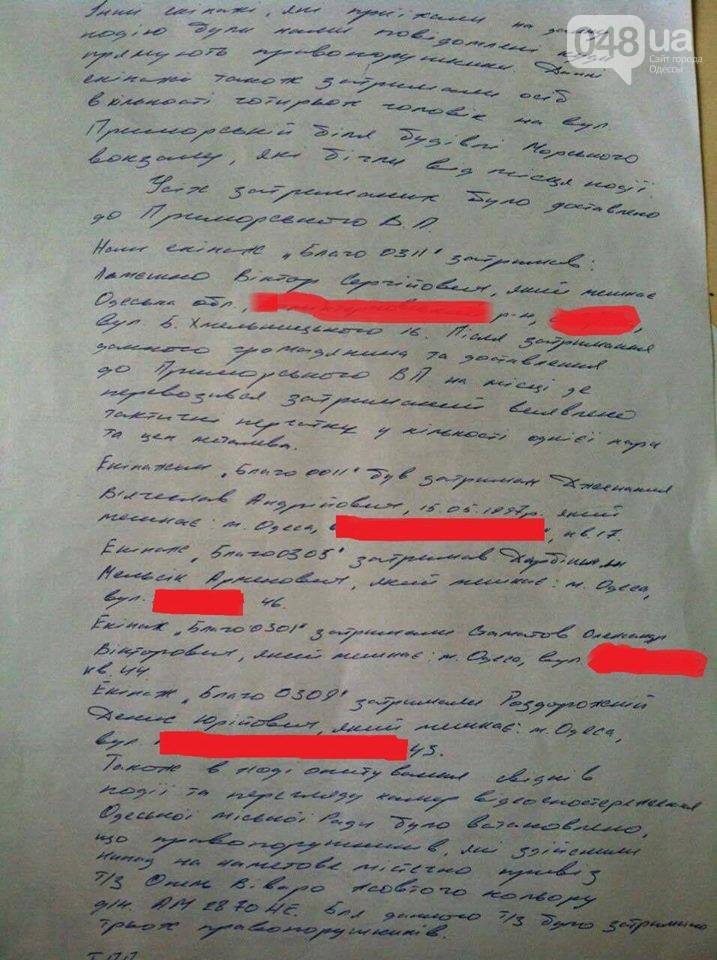 048ua
Сайт города
Одессы
Інші екіпажі, які приїхали на дану
подію були нами повідомлені куди
прямують правопорушники. Данні
екіпажи також затримали осіб
в кількості чотирьох чоловік на вул.
Приморській біля будівлі Морського
вокзалу, які бігли від місця події.
Усіх затриманих було доставлено
до Приморського В.П.
Наш екіпаж „Благо 0311" затримав:
Віктор Сергійович, який мешкає
Одеська обл., р-н,
вул. Б. Хмельницького 16. Після затримання
данного громадянина та доставлення
до Приморського ВП на місці де
перевозився затриманий виявлено
тактичні перчатки у кількості однієї пари
та цеп металева.
Екіпажем „Благо 0011" був затриман
Вячеслав Андрійович, 15.05.1997р. який
мешкає: м. Одеса, , кв. 17.
Екіпаж „Благо0305" затримав
Арменович, який мешкає: м. Одеса,
вул. 46.
Екіпаж „Благо 0301" затримали Стаматов Олександр
Вікторович, який мешкає: м. Одеса, вул.
кв. 44.
Екіпаж „Благо 0309" затримали Роздорожній
Денис Юрійович, який мешкає: м. Одеса,
вул. 43.
Також в ході опитування свідків
події та перегляду камер відеоспостереження
Одеської міської Ради було встановлено,
що правопорушників, які здійснили
напад на наметове містечко привіз
Т/З Опель Віваро жовтого кольору
д/н. АМ 2870 НЕ. Біля данного Т/З було затримано
трьох правопорушників.